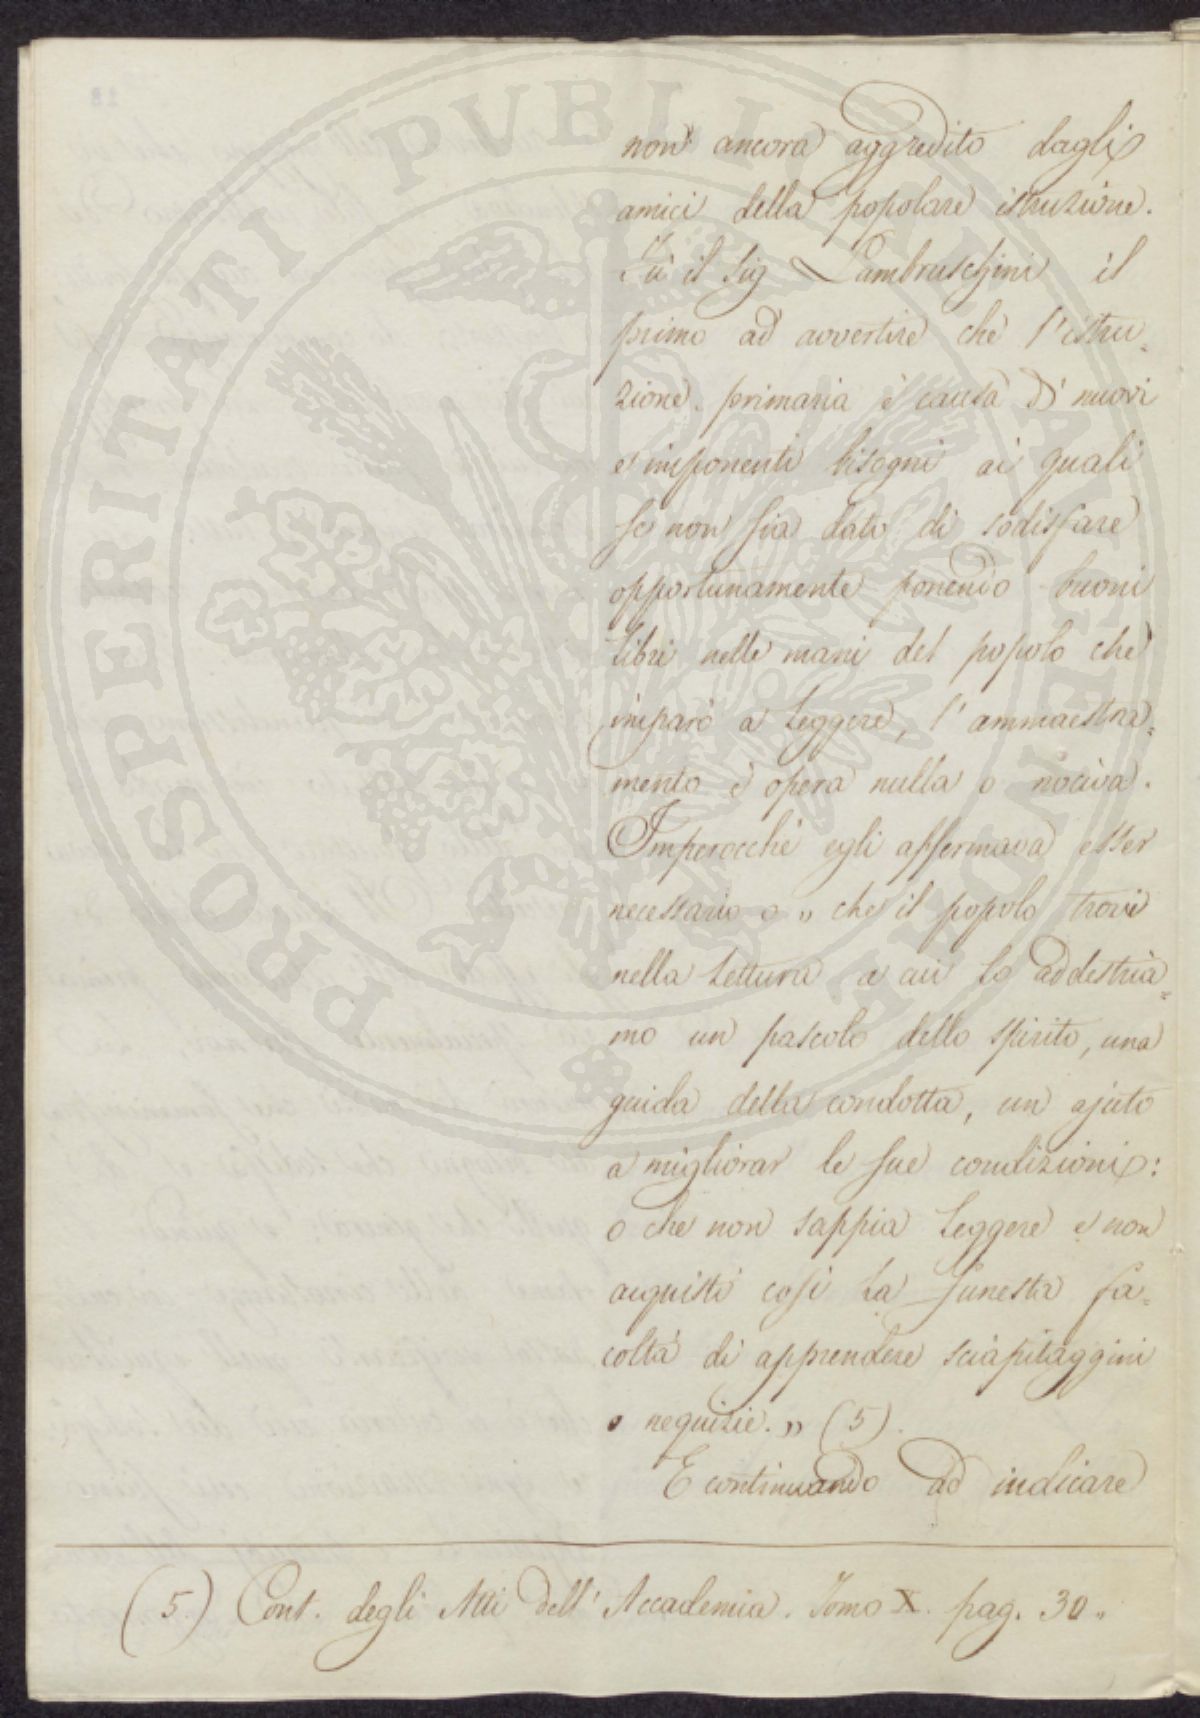 non ancora aggredito dagli
amici della popolare istruzione.
Fù il Sig Lambruschini il
primo ad avvertire che l'istru=
zione primaria è causa di nuovi
e imponenti bisogni ai quali
se non sia dato di sodisfare
opportunamente ponendo buoni
libri nelle mani del popolo che
imparò a leggere, l'ammaestra=
mento è opera nulla o nociva.
Imperocchè egli affermava esser
necessario o „ che il popolo trovi
nella lettura a cui lo addestria=
mo un pascolo dello spirito, una
guida della condotta, un ajuto
a migliorar le sue condizioni:
o che non sappia leggere e non
acquisti così la funesta fa=
coltà di apprendere sciapitaggini
o nequizie. „ (5).
E continuando ad indicare
(5.) Cont. degli Atti dell'Accademia. Tomo X. pag. 30.
PROSPERITATI PUBLICAE AUGENDAE